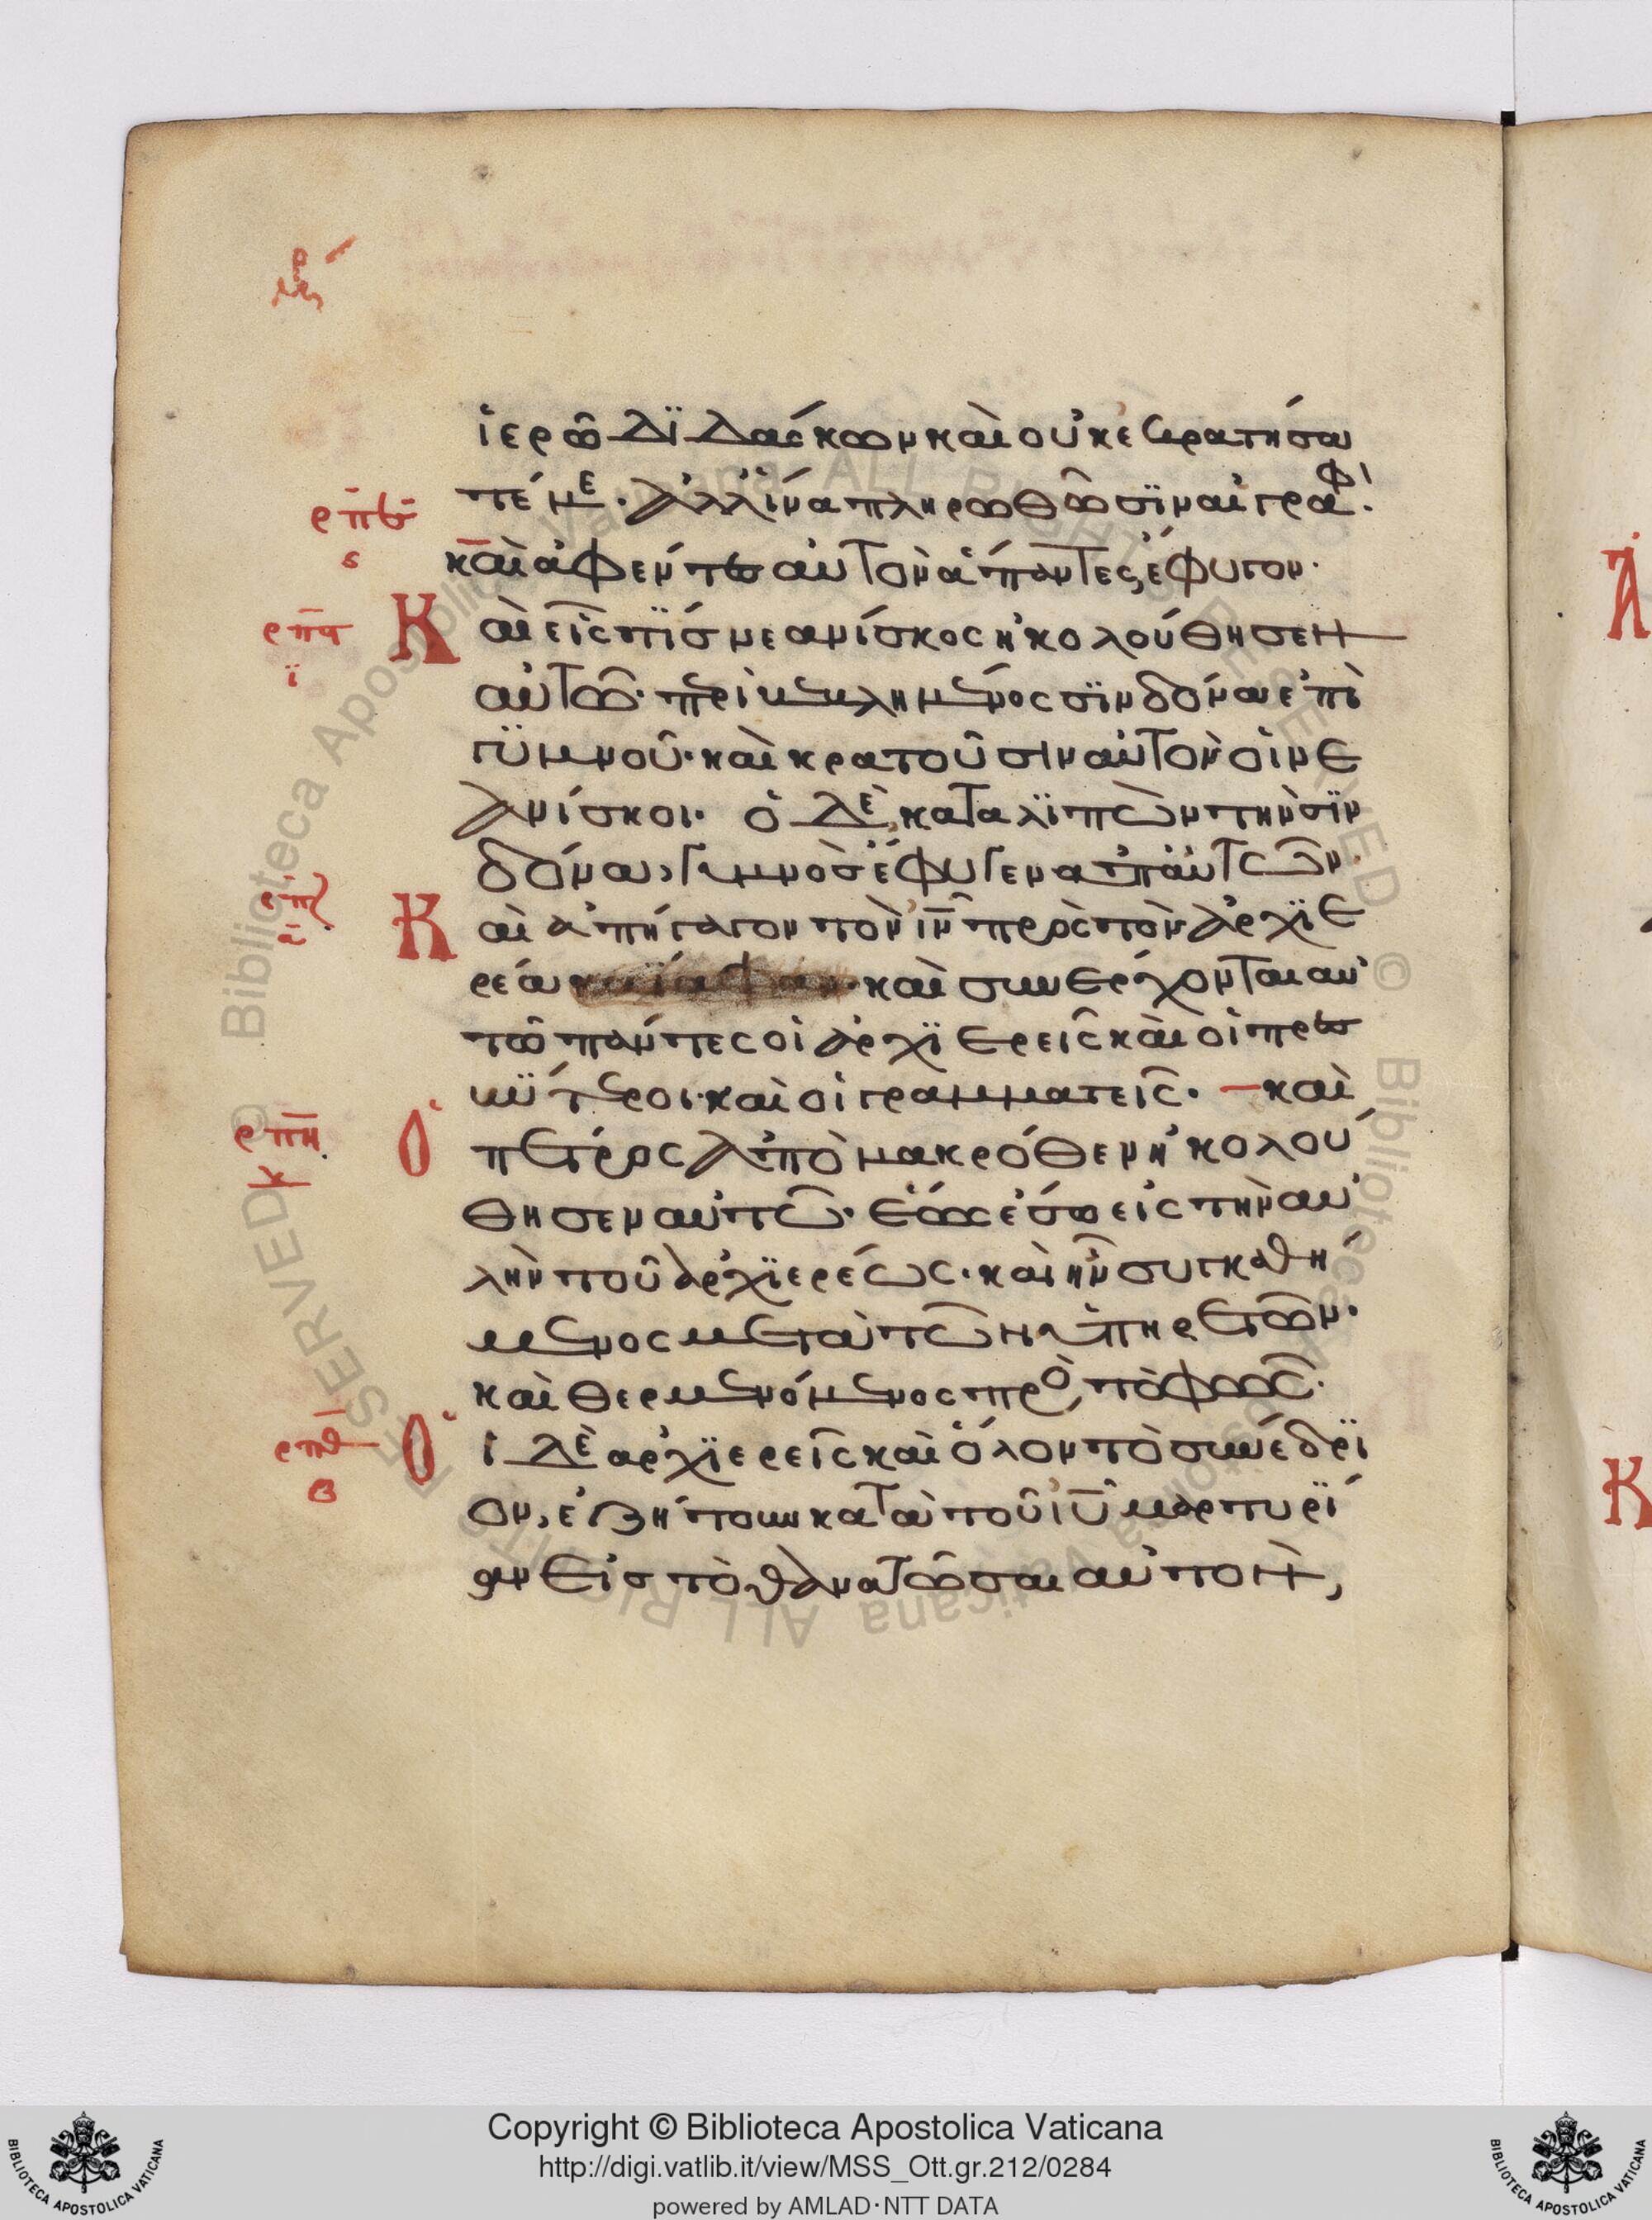 ἱερῶ διδάσκων καὶ οὐκ ἐκρατήσα
τέ με. ἀλλ' ἵνα πληρωθῶσϊν αἱ γραφ΄.
ρπϛ
ϛ
καὶ ἀφέντες αὐτὸν ἅπαντες ἔφυγον.
ρπζ
ϊ
Καὶ εἷς τϊσ νεανίσκος ἠκολούθησεν
αὐτῶ. περιβεβλημένος σϊνδόνα ἐπὶ
γϋμνοῦ. καὶ κρατοῦσιν αὐτὸν οἱ νε
ανίσκοι. ὁ δὲ καταλϊπὼν τὴν σϊν
δόνα, γυμνὸσ ἔφυγεν ἀπ' αὐτῶν.
ρπζ
α
Καὶ ἀπήγαγον τὸν ιν πρὸς τὸν ἀρχϊε
ρέα καϊάφαν. καὶ συνέρχονται αὐ
τῶ πάντες οἱ ἀρχϊερεῖς καὶ οἱ πρεσ
βϋτεροι. καὶ οἱ γραμματεῖς. – καὶ
ρπη
Ὁ πέτρος ἀπὸ μακρόθεν ἠκολού
θησεν αὐτῶ. ἕως ἔσω εἰς τὴν αὐ
λὴν τοῦ ἀρχϊερέως. καὶ ἦν συγκαθή
μενος μετὰ τῶν ὑπηρετῶν.
καὶ θερμενόμενος πρὸ, τὸ φῶς.
ρπθ
β
Οἱ δὲ ἀρχϊερεῖς καὶ ὅλον τὸ συνέδρϊ
ον, ἐζήτουν κατὰ τοῦ ιυ μαρτυρϊ
αν εἰσ τὸ θανατῶσαι αὐτὸν,
Copyright © Biblioteca Apostolica Vaticana
http://digi.vatlib.it/view/MSS_Ott.gr.212/0284
powered by AMLAD·NTT DATA